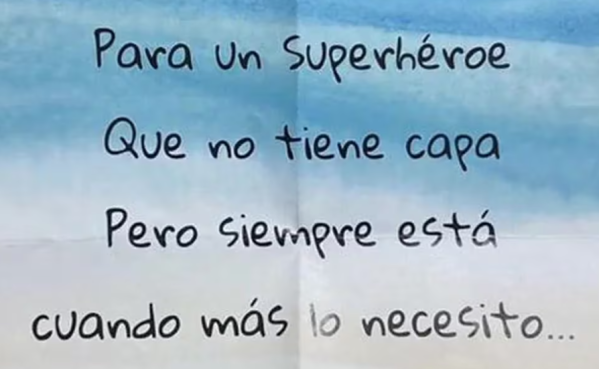 Para un Superhéroe
Que no tiene capa
Pero siempre está
cuando más lo necesito...